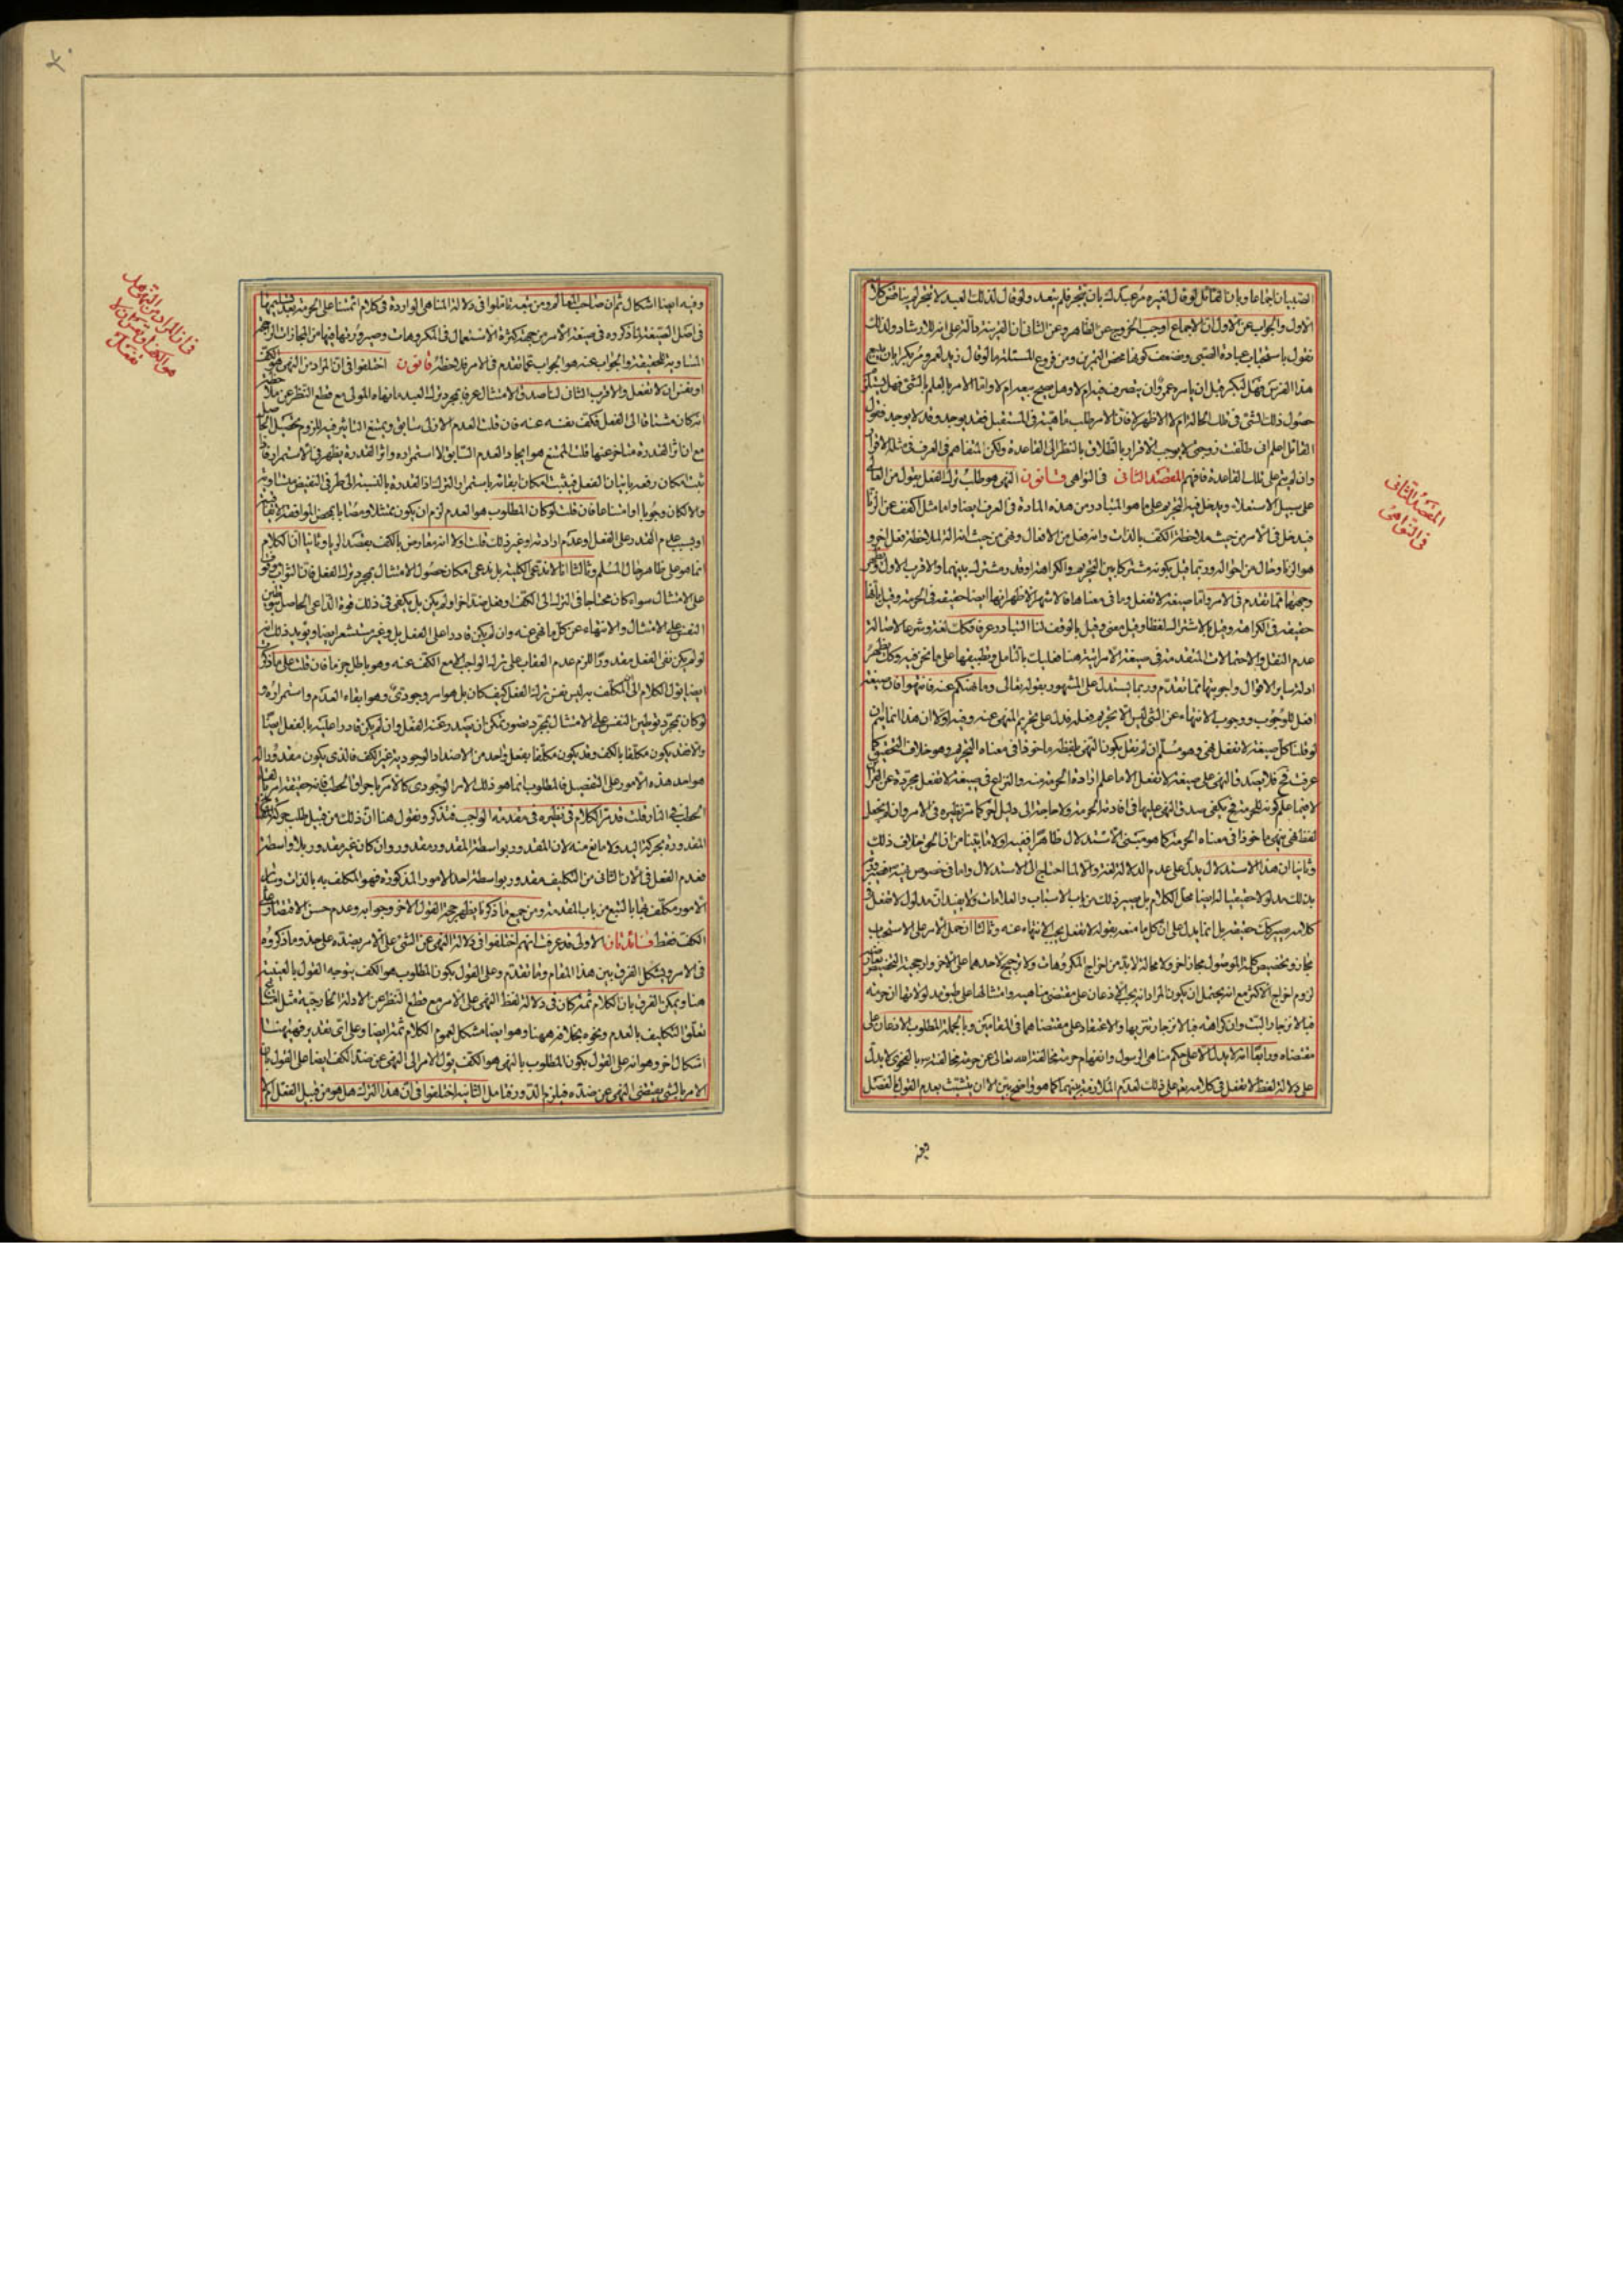 الصبيان اجماعا وبان القائل لو قال لغيره مر عبدك بان يتجر فلم يتعد ولو قال لذلك العبد لا تتجر لم يناقض كلامه
الاول والجواب عن الاول ان الاجماع اوجب الخروج عن الظاهر وعن الثاني ان القرينة دالة على انه للارشاد ولذلك
نقول باستحباب عبادة الصبي ونضعف كونها محض التمرين ومن فروع المسئلة ما لو قال زيد لعمرو مر بكرا بان يبيع
هذا الفرس فهل لبكر قبل ان يامره عمرو ان يتصرف فيه ام لا وهل يصح بيعه ام لا واما الامر بالعلم بالشئ فهل يستلزم
حصول ذلك الشئ في تلك الحالة ام لا الاظهر لا فان الامر طلب ماهية في المستقبل فقد يوجد وقد لا يوجد فقول
القائل اعلم اني طلقت زوجتي لا يوجب الاقرار بالطلاق بالنظر الى القاعدة ولكن المتفاهم في العرف في مثله الاقرار
وان لم يتم على تلك القاعدة فافهم المقصد الثاني في النواهي قانون النهي هو طلب ترك الفعل بقول من العالي
على سبيل الاستعلاء ويدخل فيه التحريم على ما هو المتبادر من هذه المادة في العرف ايضا واما مثل اكفف عن الزنا
فيدخل في الامر من حيث ملاحظة الكف بالذات وانه فعل من الافعال ونهي من حيث انه الة لملاحظة فعل اخر و
هو الزنا وحال من احواله وربما قيل بكونه مشتركا بين التحريم والكراهة او قدر مشترك بينهما والاقرب الاول ويظهر
وجهها مما تقدم في الامر واما صيغة لا تفعل وما في معناها فالاشهر الاظهر انها ايضا حقيقة في الحرمة وقيل بانها
حقيقة في الكراهة وقيل بالاشتراك لفظا وقيل معنى وقيل بالوقف لنا التبادر عرفا فكذا لغة وشرعا لاصالة
عدم النقل والاحتمالات المتقدمة في صيغة الامر اتية هنا فعليك بالتامل وتطبيقها على ما نحن فيه وكذا يظهر
ادلة ساير الاقوال واجوبتها مما تقدم وربما يستدل على المشهور بقوله تعالى وما نهيكم عنه فانتهوا فان صيغة
افعل للوجوب ووجوب الانتهاء عن الشئ ليس الا تحريم فعله فدل على تحريم المنهي عنه وفيه اولا ان هذا انما يتم
لو قلنا كل صيغة لا تفعل نهي وهو مسلم ان لم نقل بكون النهي ماخوذا في معناه التحريم وهو خلاف التحقيق كما
عرفت فلا يصدق النهي على صيغة لا تفعل الا ما علم ارادة الحرمة منه والنزاع في صيغة لا تفعل مجردة عن القرائن
لا فيما علم كونه للحرمة يكفي صدق النهي عليها في افادة الحرمة ولا حاجة الى دليل اخر كما مر نظيره في الامر وان لم يجعل
وثانيا ان هذا الاستدلال يدل على عدم الدلالة لغة والا لما احتاج الى الاستدلال
كلامه بل انما يدل على ان كل ما منعه بقوله لا تفعل يجب الانتهاء عنه وثالثا ان حمل الامر على الاستحباب
مجاز وتخصيص كلمة الموصول مجاز اخر ولا محالة لا بد من اخراج المكروهات ولا ترجيح لاحدهما على الاخر وارجحية التخصيص
لزوم اخراج الاكثر مع انه يحتمل ان يكون المراد انه يجب الاذعان على مقتضى مناهيه وامتثالها على طبق مدلولاتها ان حرمة
فبالانزجار البت وان كراهة فبالانزجار تنزيها والاعتقاد على مقتضاهما في المقامين وبالجملة المطلوب الاذعان على
مقتضاه ورابعا انه لا يدل الا على حكم مناهي الرسول وانفهام حرمة مخالفة الله تعالى عن حرمة مخالفته بالفحوى لا يدل
على دلالة لفظ لا تفعل في كلامه تعالى على ذلك لعدم الملازمة بينهما كما هو واضح بين الا ان يتشبث بعدم القول بالفصل
المقصد الثاني
في النواهي
وفيه ايضا اشكال ثم ان صاحب المعالم ومن تبعه تاملوا في دلالة المناهي الواردة في كلام ائمتنا على الحرمة
في اصل الصيغة لما ذكروه في صيغة الامر من جهة كثرة الاستعمال في المكروهات وصيرورتها فيها من المجازات الراجحة
المساوية للحقيقة والجواب عنه هو الجواب عما تقدم في الامر فلاحظه قانون اختلفوا في ان المراد من النهي هو الكف
او نفس ان لا تفعل والاقرب الثاني لنا صدق الامتثال عرفا بمجرد ترك العبد ما نهاه المولى مع قطع النظر عن ملاحظة
انه كان مشتاقا الى الفعل فكف نفسه عنه فان قلت العدم الازلي سابق ويمتنع التاثير فيه للزوم تحصيل الحاصل
مع ان اثر القدرة متاخر عنها قلت الممتنع هو ايجاد العدم السابق لا استمراره واثر القدرة يظهر في الاستمرار فاذا
ثبت امكان رفعه باتيان الفعل فيثبت امكان ابقائه باستمرار الترك اذ القدرة بالنسبة الى طرفي النقيض متساوية
والا لكان وجوبا او امتناعا فان قلت لو كان المطلوب هو العدم لزم ان يكون ممتثلا ومثابا بمحض الموافقة الاتفاقية
او بسبب عدم القدرة على الفعل او عدم ارادته او غير ذلك قلت اولا انه معارض بالكف بقصد الريا وثانيا ان الكلام
انما هو على ظاهر حال المسلم وثالثا انا لا ندعي الكلية بل ندعي امكان حصول الامتثال بمجرد ترك الفعل فان الثواب موقوف
على الامتثال سواء كان محتاجا في الترك الى الكف او فعل ضد اخر او لم يكن بل يكفي في ذلك قوة الداعي الحاصل بتوطين
النفس على الامتثال والانتهاء عن كل ما نهي عنه وان لم يكن قادرا على الفعل بل وغير مستشعر ايضا ويؤيد ذلك انه
لو لم يكن نفي الفعل مقدورا للزم عدم العقاب على ترك الواجب الا مع الكف عنه وهو باطل جزما فان قلت على ما ذكرت
ايضا يؤل الكلام الى ان المكلف به ليس نفس ترك الفعل كيف كان بل هو امر وجودي وهو ابقاء العدم واستمراره و
لو كان بمجرد توطين النفس على الامتثال بمجرد تصور تمكن ان يصدر عنه الفعل وان لم يكن قادرا عليه بالفعل ايضا
والا فقد يكون مكلفا بالكف وقد يكون مكلفا بفعل واحد من الاضداد الوجودية غير الكف فالذي يكون مقدورا له
هو احد هذه الامور على التفصيل فالمطلوب انما هو ذلك الامر الوجودي كالامر باحراق الحطب فانه حقيقة
الحطب في النار قلت قد مر الكلام في نظيره في مقدمة الواجب فتذكر ونقول هنا ان ذلك من قبيل طلب حركة المفتاح
المقدورة بحركة اليد ولا مانع منه لان المقدور بواسطة المقدور مقدور وان كان غير مقدور بلا واسطة
فعدم الفعل في الآن الثاني من التكليف مقدور بواسطة احد الامور المذكورة فهو المكلف به بالذات وتلك
الامور مكلف بها بالتبع من باب المقدمة ومن جميع ما ذكرنا يظهر حجة القول الاخر وجوابه وعدم حسن الاقتصار على
الكف فقط فائدتان الاولى قد عرفت انهم اختلفوا في دلالة النهي عن الشئ على الامر بضده على حذو ما ذكروه
في الامر ويشكل الفرق بين هذا المقام وما تقدم وعلى القول بكون المطلوب هو الكف يتوجه القول بالعينية
هنا ويمكن الفرق بان الكلام ثمة كان في دلالة لفظ النهي على الامر مع قطع النظر عن الادلة الخارجية مثل امتناع
تعلق التكليف بالعدم ونحوه بخلافه ههنا وهو ايضا مشكل لعموم الكلام ثمة ايضا وعلى اي تقدير فههنا
اشكال اخر وهو انه على القول بكون المطلوب بالنهي هو الكف يؤل الامر الى النهي عن ضد الكف ايضا على القول بان
الامر بالشئ يقتضي النهي عن ضده فيلزم الدور فتامل الثانية اختلفوا في ان هذا الترك هل هو من قبيل الفعل
في ان المراد من النهي هل
هو الكف او نفس ان لا
تفعل